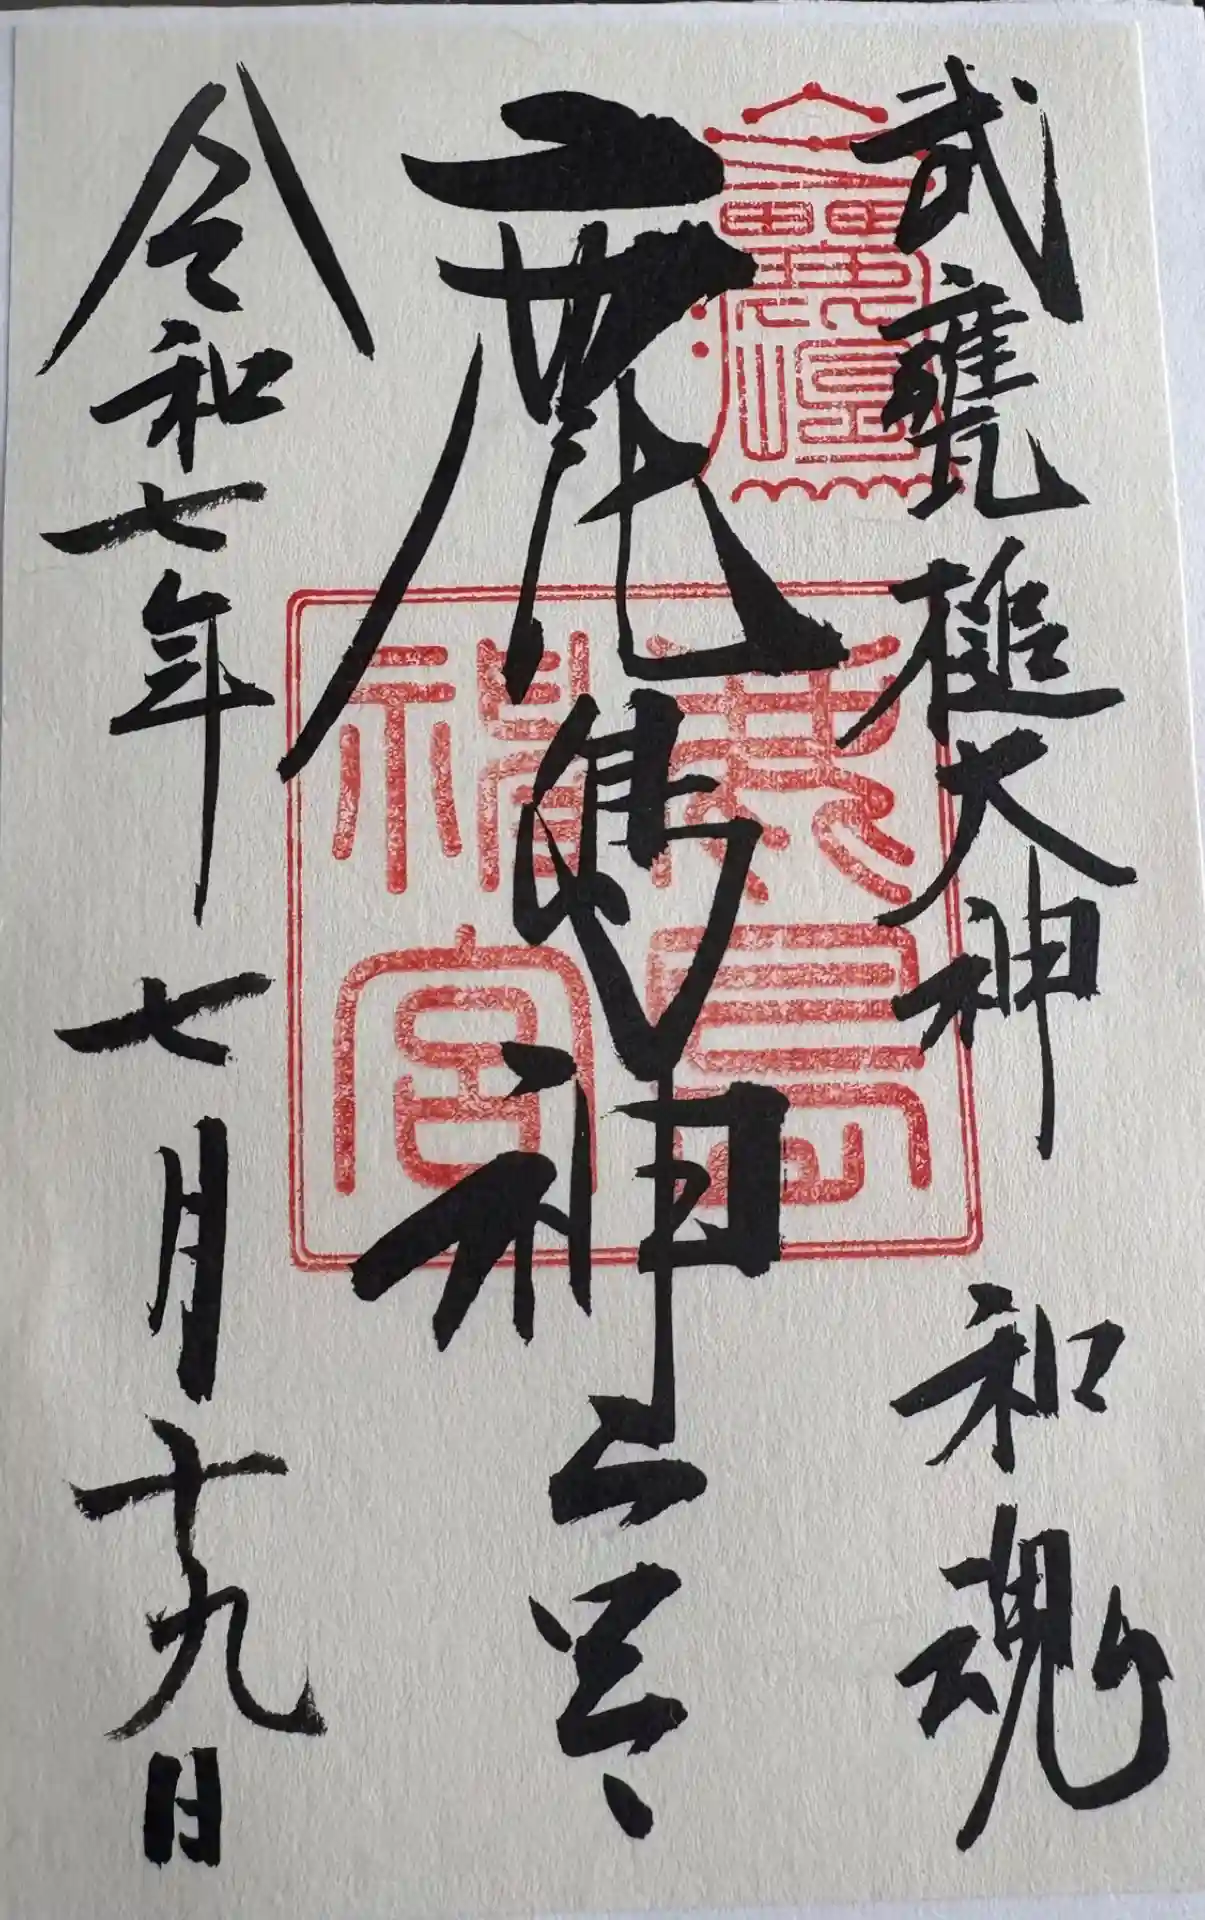 武甕槌大神 和魂
鹿島神宮
令和七年 七月十九日